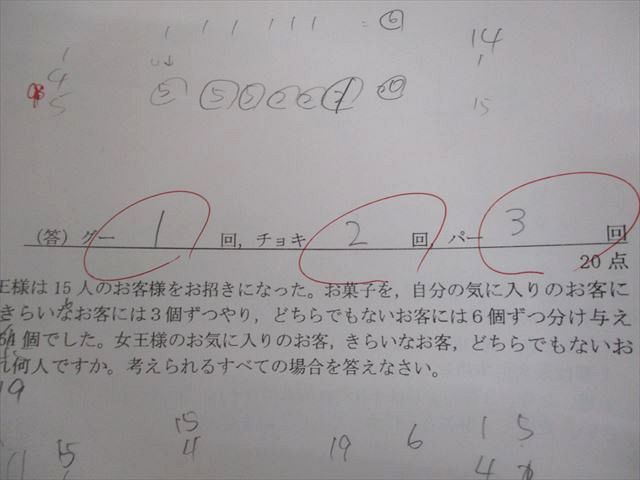 1 1 1 1 1 1 = ⑥ 14
1 1
4
5 ⑤ ⑤ 15
(答) グー 1 回, チョキ 2 回, パー 3 回
20 点
王様は 15 人のお客様をお招きになった。お菓子を, 自分の気に入りのお客に
きらいなお客には 3 個ずつやり, どちらでもないお客には 6 個ずつ分け与え
個でした。女王様のお気に入りのお客, きらいなお客, どちらでもないお
れ何人ですか。考えられるすべての場合を答えなさい。
19
15 1 5
15 4 19 6 4